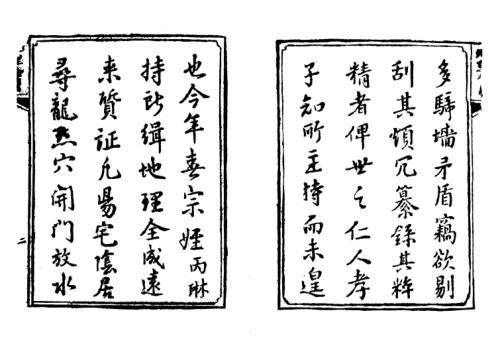 多歸墻矛盾竊欲剔
刮其煩冗纂錄其粹
精者俾世之仁人孝
子知所主持而未遑
也今年春宗姪丙琳
持所緝地理全成遠
来質証凡昜宅陰居
尋龍點穴開門放水
二